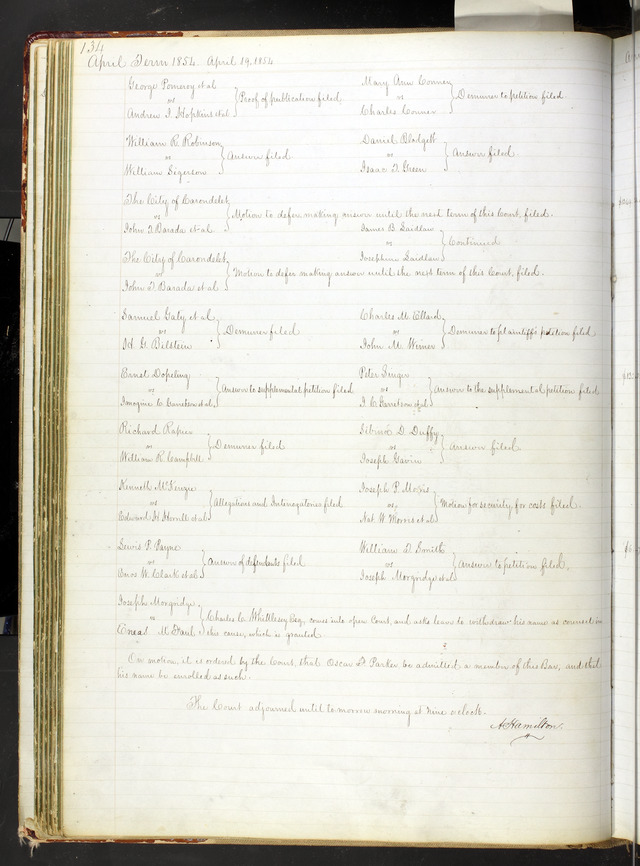 134
April Term 1854 April 19, 1854
George Pomeroy et al
vs
Andrew J. Hopkins et al
Proof of publication filed
Mary Ann Conner
vs
Charles Conner
Demurrer to petition filed.
William R. Robinson
vs
William Segerson
Answer filed
Daniel Blodgett
vs
Isaac T. Green
Answer filed.
The City of Carondelet
vs
John T. Barada et al
Motion to defer making answer until the next term of this Court, filed.
James B Laidlaw
vs
Josephine Laidlaw
Continued
The City of Carondelet
vs
John T. Barada et al
Motion to defer making answer until the next term of this Court, filed.
Samuel Gaty et al
vs
H. G. Bilstein
Demurrer filed
Charles M. Ellard
vs
John M. Wimer
Demurrer to plaintiff's petition filed
Ernst Dopeling
vs
Imogine C. Garretson et al
Answer to supplemental petition filed
Peter
vs
I. C. Garretson et al
Answer to the supplemental petition filed
Richard
vs
William R. Campbell
Demurrer filed
D. Duffy
vs
Joseph Gavin
Answer filed.
Kenneth McKenzie
vs
Edward H. et al
Allegations and Interogatories filed
Joseph P.
vs
Nat. W. et al
Motion for security for costs filed
Lewis P. Payne
vs
Enos W. Clark et al
Answer of defendants filed
William D. Smith
vs
Joseph Morgridge et al
Answer to petition filed.
Joseph Morgridge
vs
Eneas McFaul
Charles C. Whittlesey Esq. comes into open Court, and asks leave to withdraw his name as counsel in
this cause, which is granted.
On motion, it is ordered by the Court, that Oscar F. Parker be admitted a member of this Bar, and that
his name be enrolled as such.
The Court adjourned until to morrow morning at nine oclock.
A Hamilton.